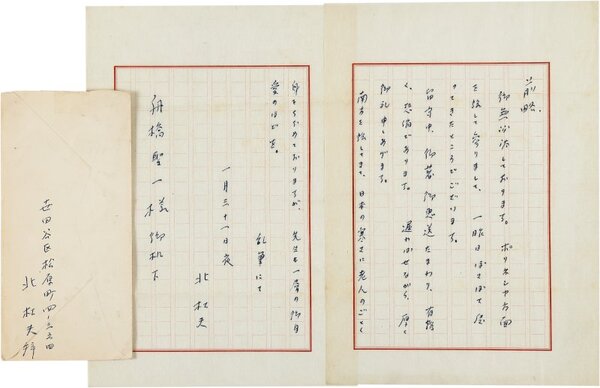 前略、
御無沙汰しております。ポリネシヤ方面
を旅して参りまして、一昨日
ってきたところでございます。
留守中、御著御恵送たまわり、有難
く、恐縮であります。遅ればせながら、厚く
御礼申しあげます。
南方を旅してきて、日本の寒さに老人のごとく
身をちぢめておりますが、先生も一層の御自
愛のほどを。
乱筆にて
一月三十一日夜
北杜夫
舟橋聖一様 御机下
世田谷区松原町四ノ
北杜夫拝